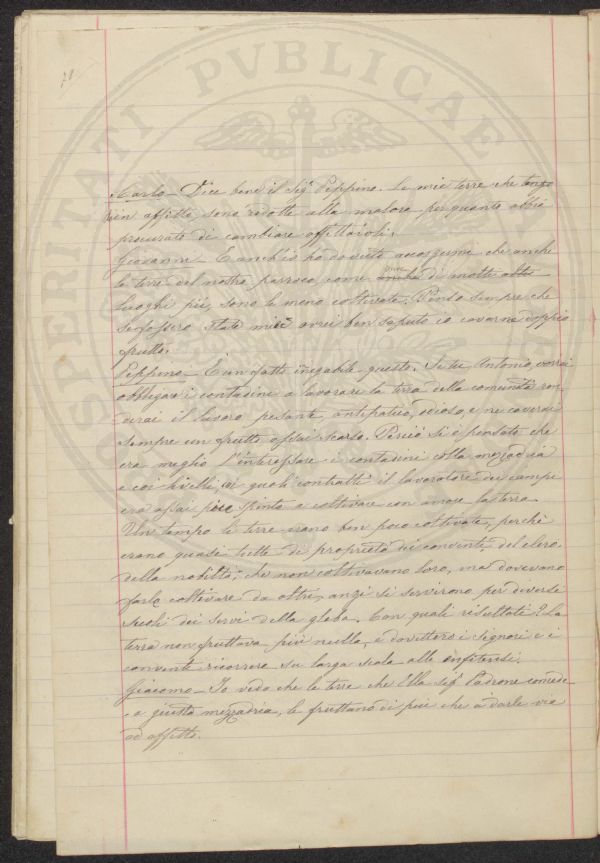 Carlo – Dice bene il Sig.r Peppino. Le mie terre che tengo
in affitto sono ridotte alla malora per quanto abbia
procurato di cambiare affittaioli.
Giovanni – E anch'io ho dovuto accorgermi che anche
le terre del nostro parroco, come di molti altri
luoghi pii, sono le meno coltivate. Penso sempre che
se fossero state mie avrei ben saputo io cavarne doppio
frutto.
Peppino – È un fatto inegabile questo. Se tu, Antonio, vorrai
obbligare i contadini a lavorare la terra della comunità ren
derai il lavoro pesante, antipatico, odioso, e ne caverai
sempre un frutto assai scarso. Perciò si è pensato che
era meglio l'interessare i contadini colla mezzadria
e coi livelli, coi quali contratti il lavoratore dei campi
era assai più spinto a coltivare con amore la terra.
Un tempo le terre erano ben poco coltivate, perchè
erano quasi tutte di proprietà dei conventi, del clero
della nobiltà, che non coltivavano loro, ma dovevano
farle coltivare da altri, anzi si servirono per diversi
secoli dei servi della gleba. Con quali risultati? La
terra non fruttava più nulla, e dovettero i signori e i
conventi ricorrere su larga scala alle enfiteusi.
Giacomo – Io vedo che le terre che Ella Sig.r Padrone concede
a giusta mezzadria, le fruttano di più che a darle via
ad affitto.
PROSPERITATI PVBLICAE